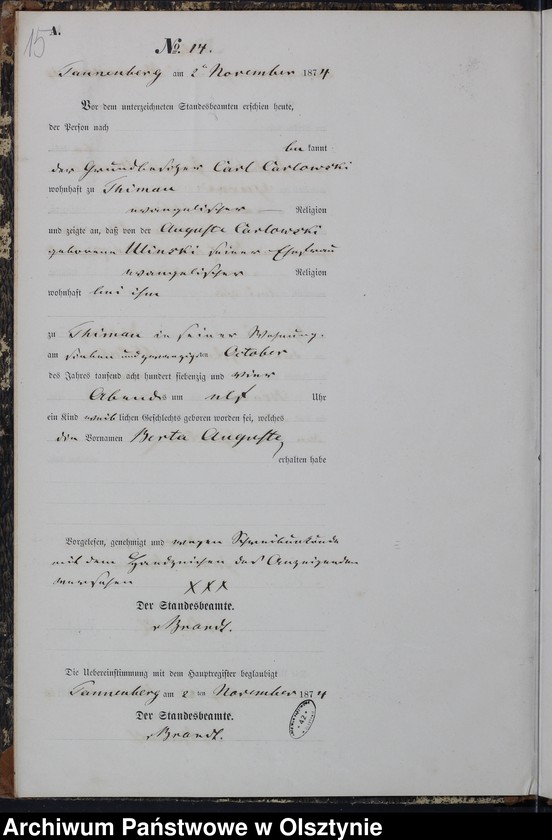 15
A.
No. 14.
Tannenberg am 2ten November 1874
Vor dem unterzeichneten Standesbeamten erschien heute,
der Person nach
be kannt
der Grundbesitzer Carl Carlowski
wohnhaft zu Thimau
evangelischer Religion
und zeigte an, daß von der Auguste Carlowski
geborene Ulinski seiner Ehefrau
evangelischer Religion
wohnhaft bei ihm
zu Thimau in seiner Wohnung.
am sieben und zwanzigsten October
des Jahres tausend acht hundert siebenzig und vier
Abends um elf Uhr
ein Kind weib lichen Geschlechts geboren worden sei, welches
die Vornamen Berta Auguste,
erhalten habe
Vorgelesen, genehmigt und wegen Schreibunkunde
mit dem Handzeichen des Anzeigenden
versehen XXX
Der Standesbeamte.
vBrandt.
Die Uebereinstimmung mit dem Hauptregister beglaubigt
Tannenberg am 2 ten November 1874
Der Standesbeamte.
vBrandt.
42
Archiwum Państwowe w Olsztynie